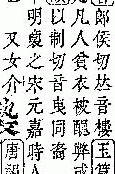 郎侯切𠀤音樓玉篇
凡人貧衣被醜弊或
以制切音曳同裔
明襃之宋元嘉時人
又女介
唐韻